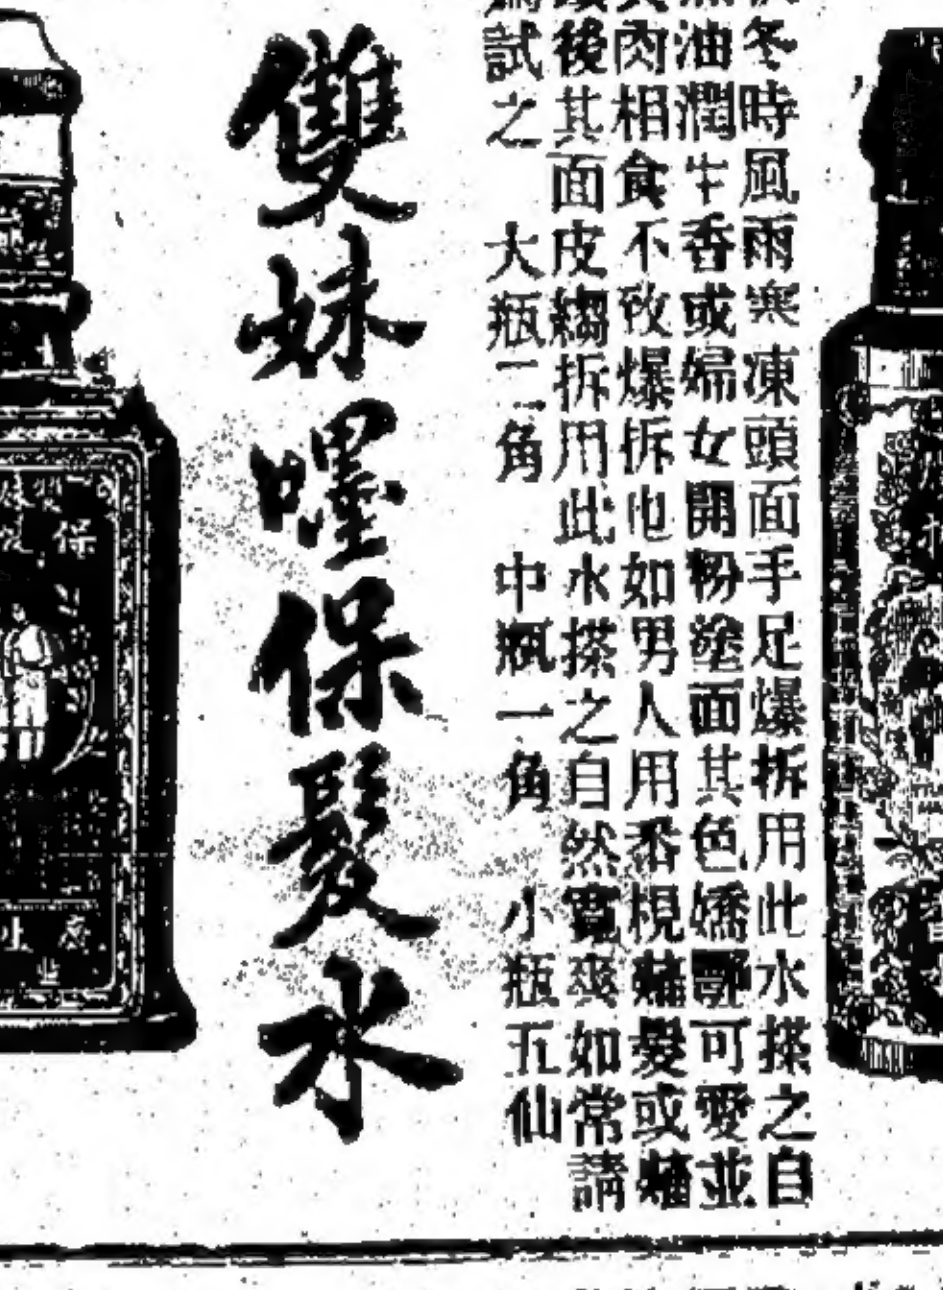 冬時風雨寒凍頭面手足爆拆用此水搽之自
油潤生香或婦女開粉塗面其色嬌艷可愛並
肉相食不致爆拆也如男人用番梘髮或
後其面皮縐拆用此水搽之自然寬爽如常請
試之 大瓶二角 中瓶一角 小瓶五仙
雙妹嚜保髮水